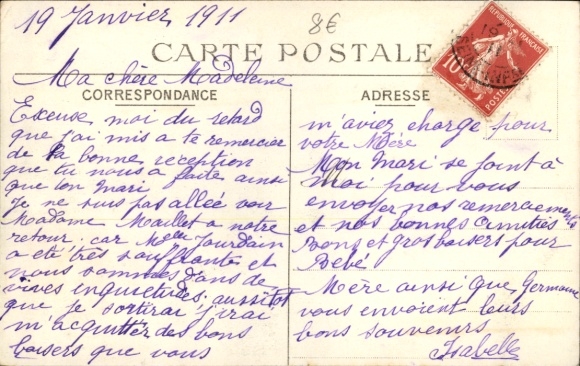 19 Janvier 1911
8€
CARTE POSTALE
REPUBLIQUE FRANÇAISE
10
Ma chère Madeleine
CORRESPONDANCE
Excuse moi du retard
que j'ai mis a te remercier
de la bonne reception
que tu nous a faite ainsi
que ton Mari
Je ne suis pas allée voir
Madame Maillet a notre
retour, car Melle Jourdain
a été très souffrante et
nous sommes dans de
vives inquietudes, aussitot
que je sortirai j'irai
m'acquitter des bons
baisers que vous
ADRESSE
m'aviez charge pour
votre Mère
Mon Mari se joint à
moi pour vous
envoyer nos remerciements
et nos bonnes amitiés
Bons et gros baisers pour
Bébé
Mère ainsi que Germaine
vous envoient leurs
bons souvenirs
Isabelle